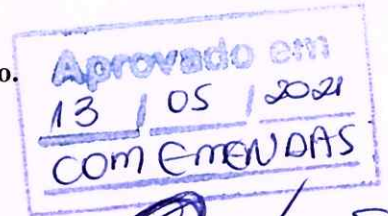 o.
Aprovado em
13 / 05 / 2021
COM EMENDAS